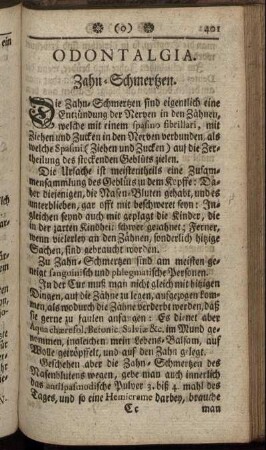 (o) 401
ODONTALGIA.
Zahn-Schmertzen.
Die Zahn-Schmertzen sind eigentlich eine
Entzündung der Nerven in den Zähnen,
welche mit einem spasmo fibrillari, mit
Ziehen und Zucken in den Nerven verbunden, als
welche Spasmi (Ziehen und Zucken) auf die Zer-
theilung des stockenden Geblüts zielen.
Die Ursache ist meistentheils eine Zusam-
mensammlung des Geblüts in dem Kopffe: Da-
her diejenigen, die Nasen-Bluten gehabt, und es
unterblieben, gar offt mit beschweret seyn: In-
gleichen seynd auch mit geplagt die Kinder, die
in der zarten Kindheit schwer gezahnet; Ferner,
wenn vielerley an den Zähnen, sonderlich hitzige
Sachen, sind gebraucht worden.
Zu Zahn-Schmertzen sind am meisten ge-
neigt sanguinisch und phlegmatische Personen.
In der Cur muß man nicht gleich mit hitzigen
Dingen, auf die Zähne zu legen, aufgezogen kom-
men, als wodurch die Zähne verderbt werden, daß
sie gerne zu faulen anfangen: Es dienet aber
Aqua Betonic. Salviæ &c. im Mund ge-
nommen, imgleichen mein Lebens-Balsam, auf
Wolle getröpffelt, und auf den Zahn gelegt.
Geschehen aber die Zahn-Schmertzen des
Nasenblutens wegen, gebe man auch innerlich
das antispasmodische Pulver 3. biß 4. mahl des
Tages, und so eine Hemicrame darbey, brauche
Cc man